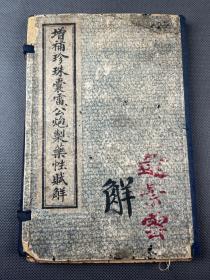 增補珍珠囊雷公炮製藥性賦解
解